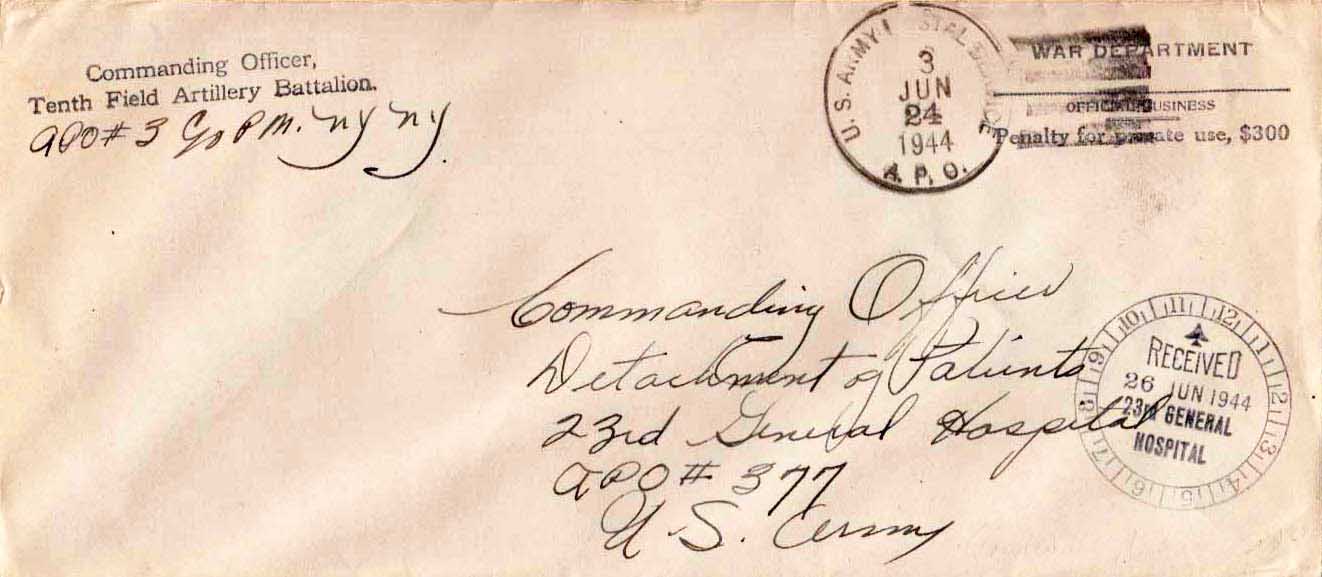 Commanding Officer,
Tenth Field Artillery Battalion.
APO # 3 c/o P.M. NY NY.
U.S. ARMY POSTAL SERVICE
3
JUN
24
1944
A.P.O.
WAR DEPARTMENT
OFFICIAL BUSINESS
Penalty for private use, $300
Commanding Officer
Detachment of Patients
23rd General Hospital
APO # 377
U.S. Army
RECEIVED
26 JUN 1944
23rd GENERAL
HOSPITAL
10 11 12 1 2 3 4 5 6 7 8 9